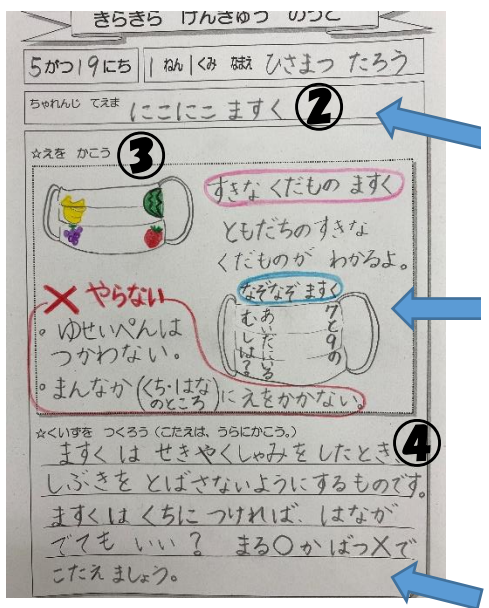 きらきら けんきゅう のうと
5がつ19にち 1ねん1くみ なまえ ひさまつ たろう
ちゃれんじ てえま にこにこ ますく ②
☆えを かこう ③
すきな くだもの ますく
ともだちの すきな
くだものが わかるよ。
× やらない
。ゆせいぺんは
つかわない。
。まんなか(くち・はなのところ)にえをかかない。
なぞなぞ ますく
7と9の
あいだにいる
むしは?
☆くいずを つくろう(こたえは、うらにかこう。) ④
ますく は せきやくしゃみ を したとき、
しぶきを とばさないようにするものです。
ますくは くちに つければ、はなが
でても いい? まる○か ばつ×で
こたえましょう。